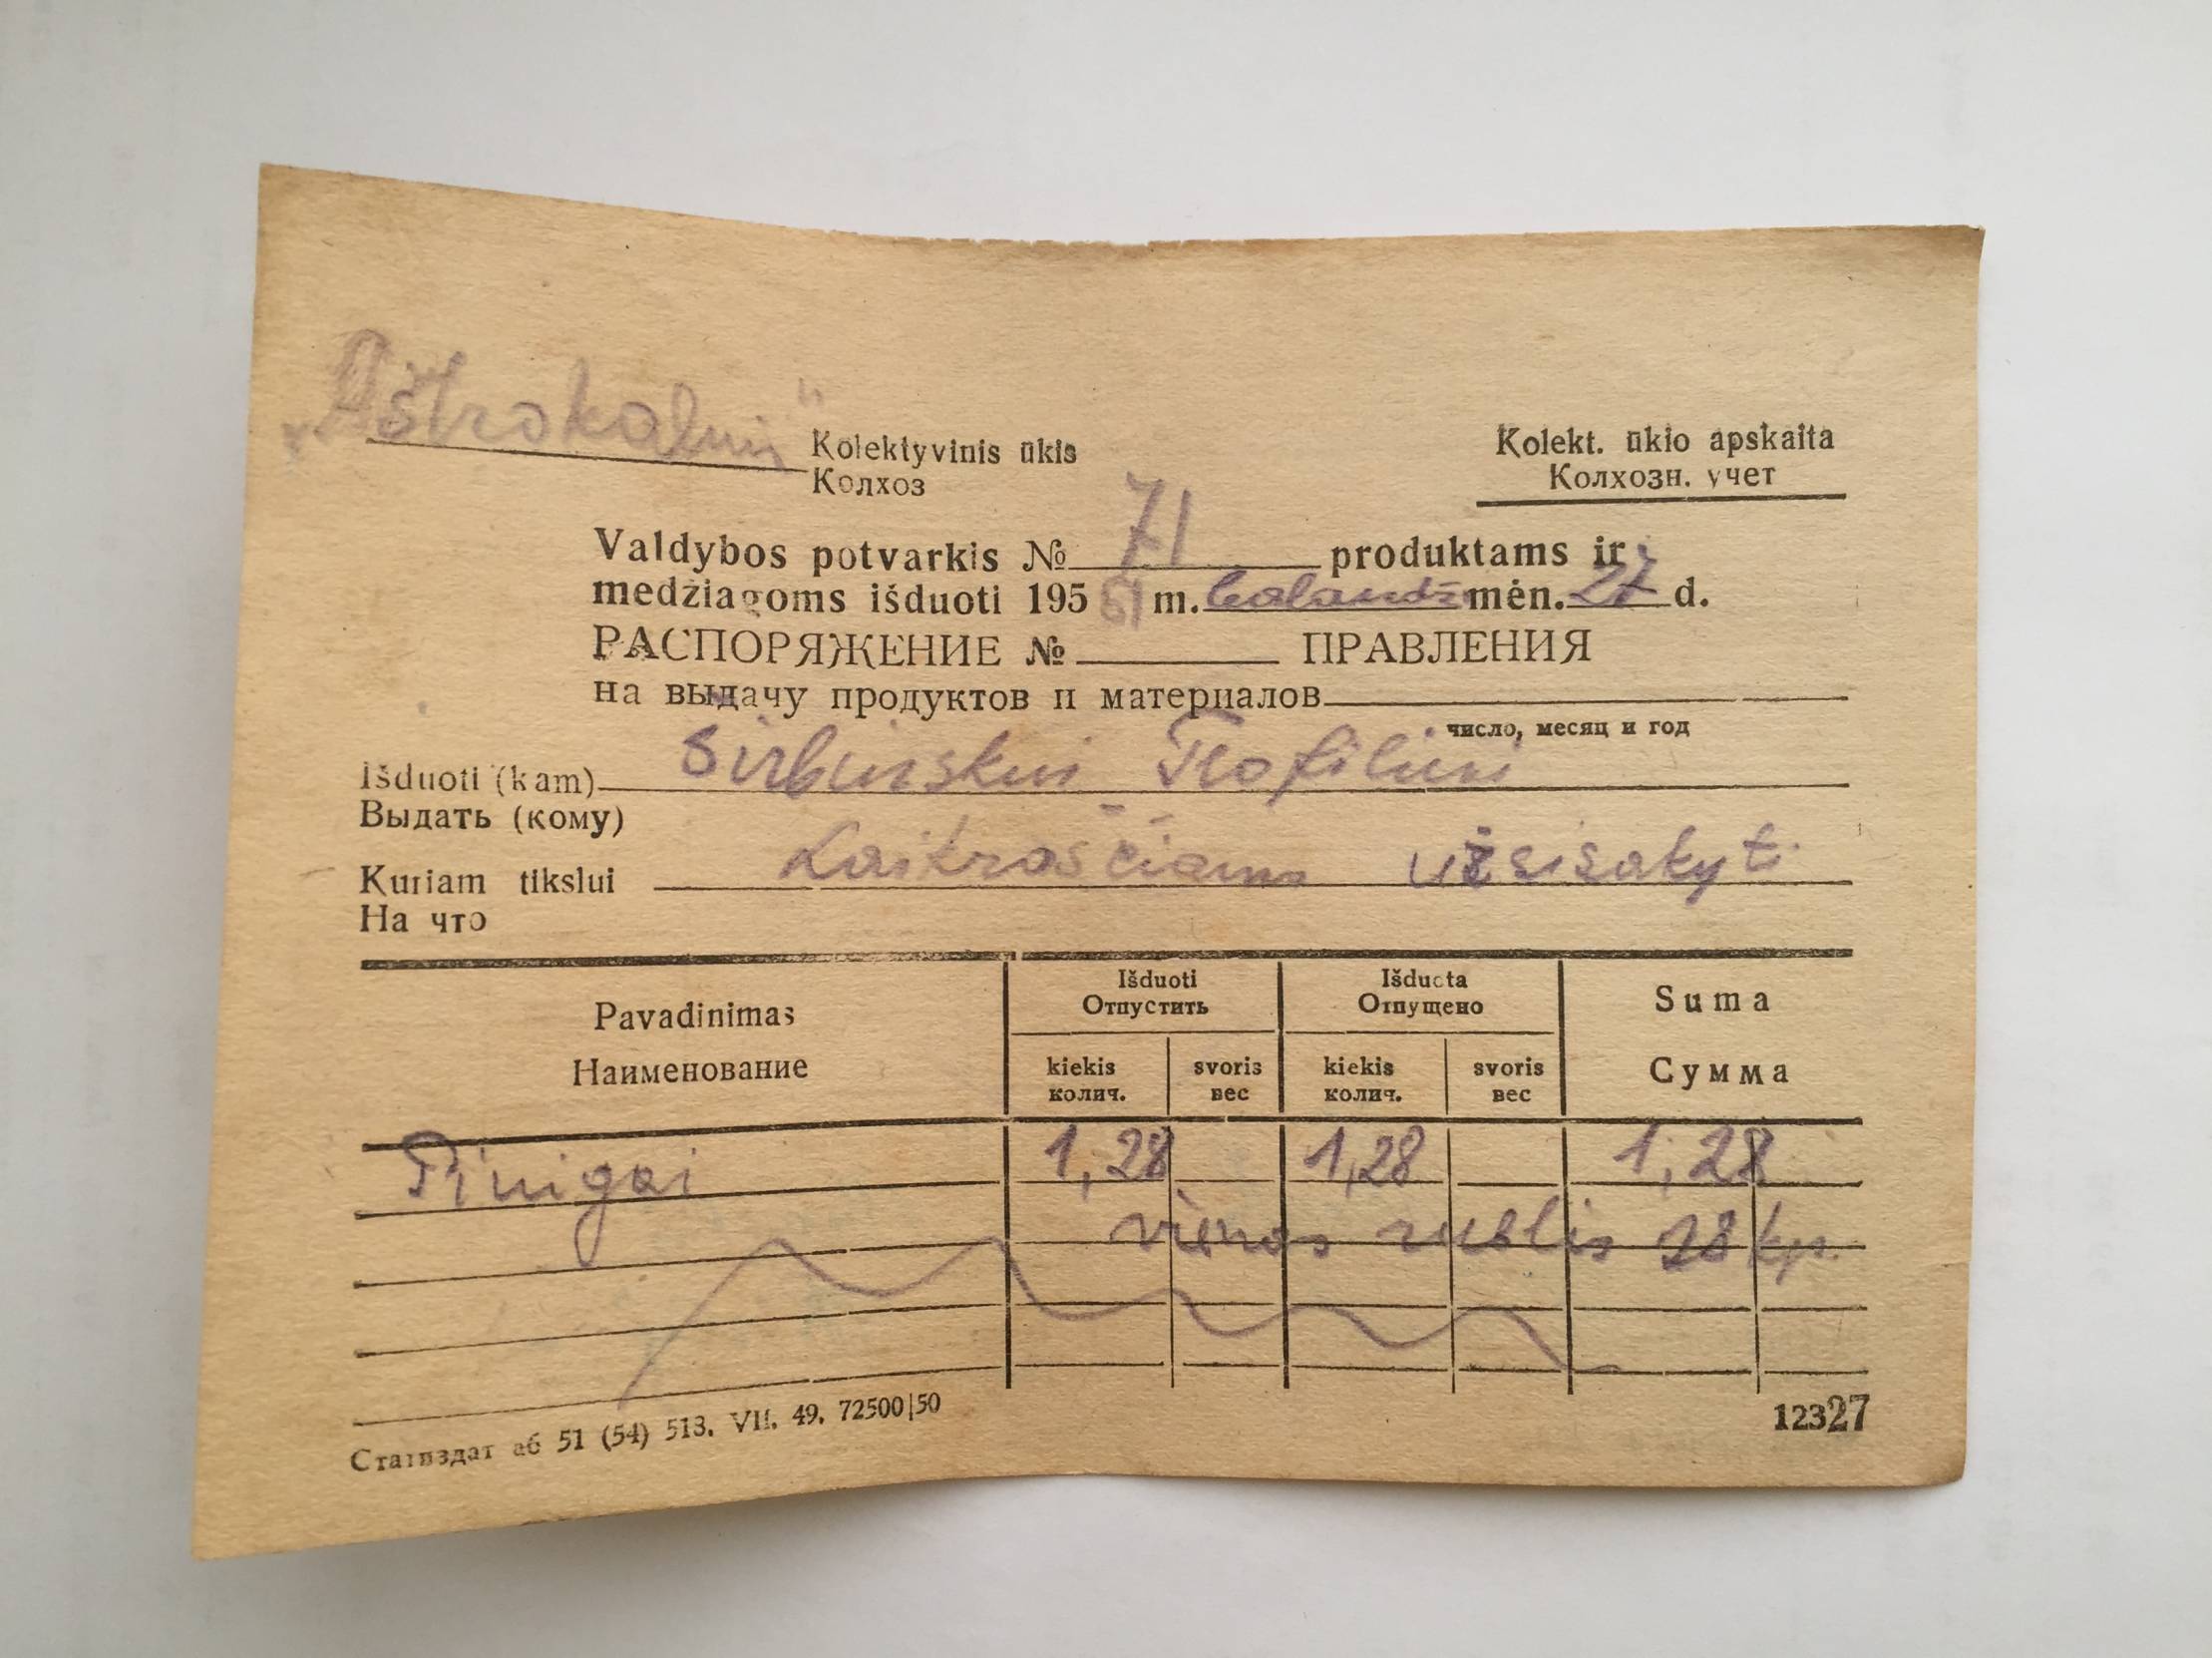 „Aštrokalnių"
Kolektyvinis ūkis
Колхоз
Kolekt. ūkio apskaita
Колхозн. учет
Valdybos potvarkis № 71 produktams ir
medžiagoms išduoti 195 51 m. baland mėn. 27 d.
РАСПОРЯЖЕНИЕ № ПРАВЛЕНИЯ
на выдачу продуктов и материалов
число, месяц и год
Išduoti (kam) Teofiliui
Выдать (кому)
Kuriam tikslui Laikraščiams užsisakyti
На что
Pavadinimas
Наименование
Išduoti
Отпустить
Išduota
Отпущено
Suma
Сумма
kiekis svoris kiekis svoris
колич. вес колич. вес
Pinigai 1,28 1,28 1,28
vienas rublis 28 kp.
Статиздат аб 51 (54) 513. VII. 49. 72500|50
12327